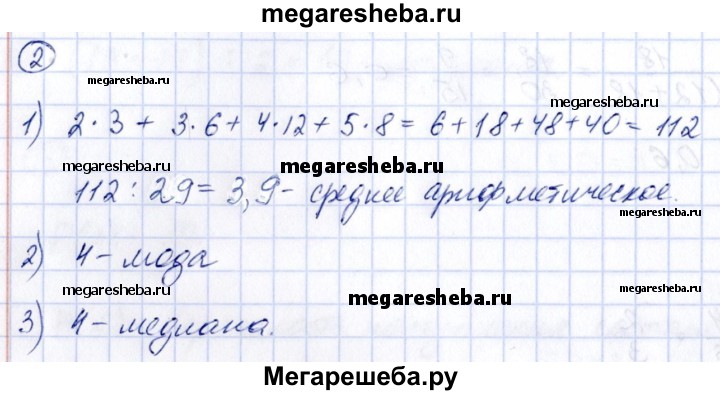 megaresheba.ru
2
megaresheba.ru
megaresheba.ru
1) 2·3 + 3·6 + 4·12 + 5·8 = 6 + 18 + 48 + 40 = 112
megaresheba.ru
megaresheba.ru
megaresheba.ru
112 : 29 = 3,9 - среднее арифметическое.
2) 4 - мода
megaresheba.ru
megaresheba.ru
megaresheba.ru
3) 4 - медиана.
Мегарешеба.ру